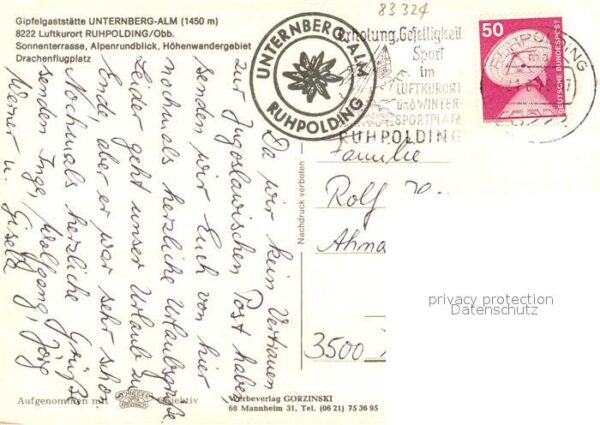 83 324
Gipfelgaststätte UNTERNBERG-ALM (1450 m)
8222 Luftkurort RUHPOLDING/Obb.
Sonnenterrasse, Alpenrundblick, Höhenwandergebiet
Drachenflugplatz
UNTERNBERG-ALM
RUHPOLDING
Erholung, Geselligkeit
Sport
im
LUFTKURORT
und WINTER-
SPORTPLATZ
RUHPOLDING
50
DEUTSCHE BUNDESPOST
RUHPOLDING
Da wir kein Vertrauen
zur Jugoslawischen Post haben,
senden wir Euch von hier
nochmals herzliche Urlaubsgrüße.
Leider geht unser Urlaub zu
Ende, aber er war sehr schön.
Nochmals herzliche Grüße
senden Inge, Wolfgang, Jörg
Werner u. Gisela
Nachdruck verboten
Familie
Rolf
Ahna
3500
privacy protection
Datenschutz
Aufgenommen mit
Objektiv
Werbeverlag GORZINSKI
68 Mannheim 31, Tel. (06 21) 75 36 95